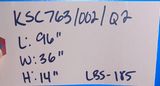 KSC763/002/Q2
L: 96"
W: 36"
H: 14" LBS-185